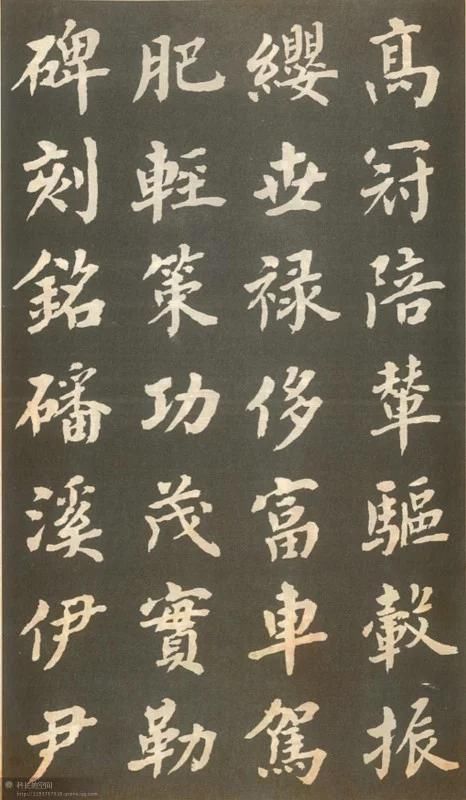 高冠陪輦驅轂振
纓世禄侈富車駕
肥輕策功茂實勒
碑刻銘磻溪伊尹